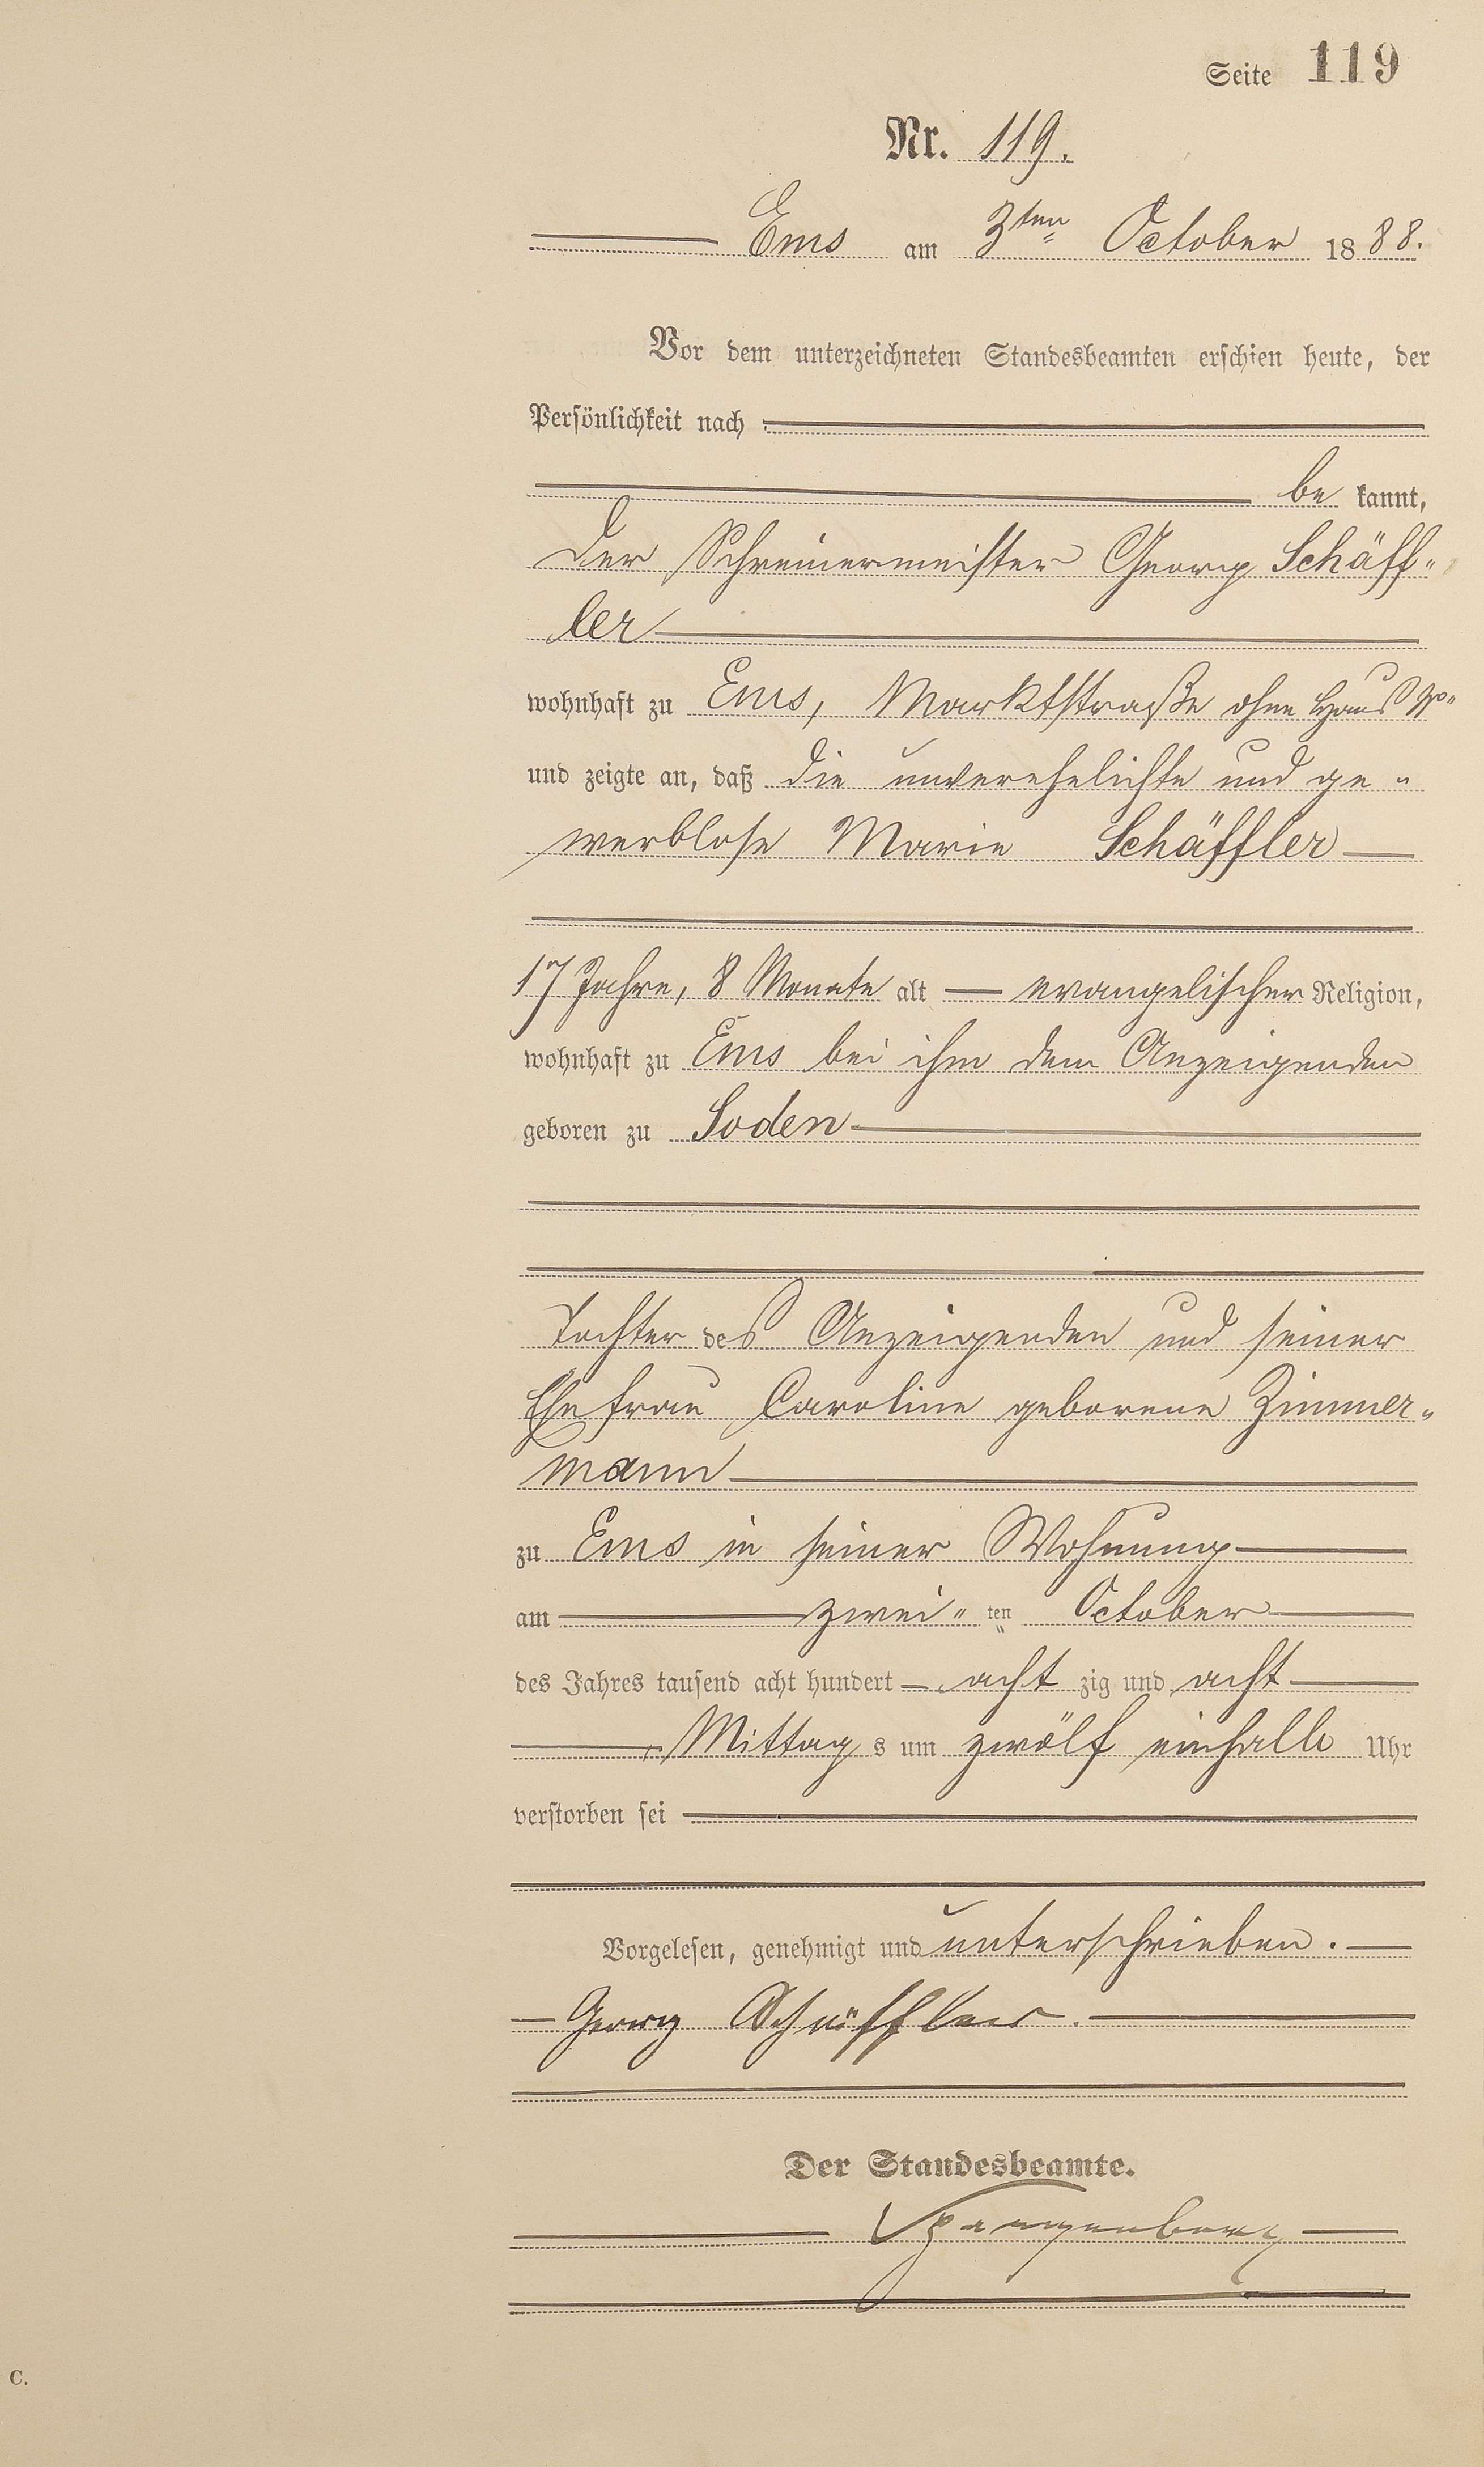 Seite 119
Nr. 119.
Ems am 3ten October 1888.
Vor dem unterzeichneten Standesbeamten erschien heute, der
Persönlichkeit nach
be kannt,
der Schreinermeister Georg Schäff-
ler
wohnhaft zu Ems, Marktstraße ohne Haus No
und zeigte an, daß die unverehelichte und ge-
werblose Marie Schäffler
17 Jahre, 8 Monate alt evangelischer Religion,
wohnhaft zu Ems bei ihm dem Anzeigenden
geboren zu Soden
Tochter des Anzeigenden und seiner
Ehefrau Caroline geborene Zimmer-
mann
zu Ems in seiner Wohnung
am zwei-ten October
des Jahres tausend acht hundert acht zig und acht
Mittags um zwölf einhalb Uhr
verstorben sei
Vorgelesen, genehmigt und unterschrieben.
Georg Schäffler.
Der Standesbeamte.
Spangenberg
C.